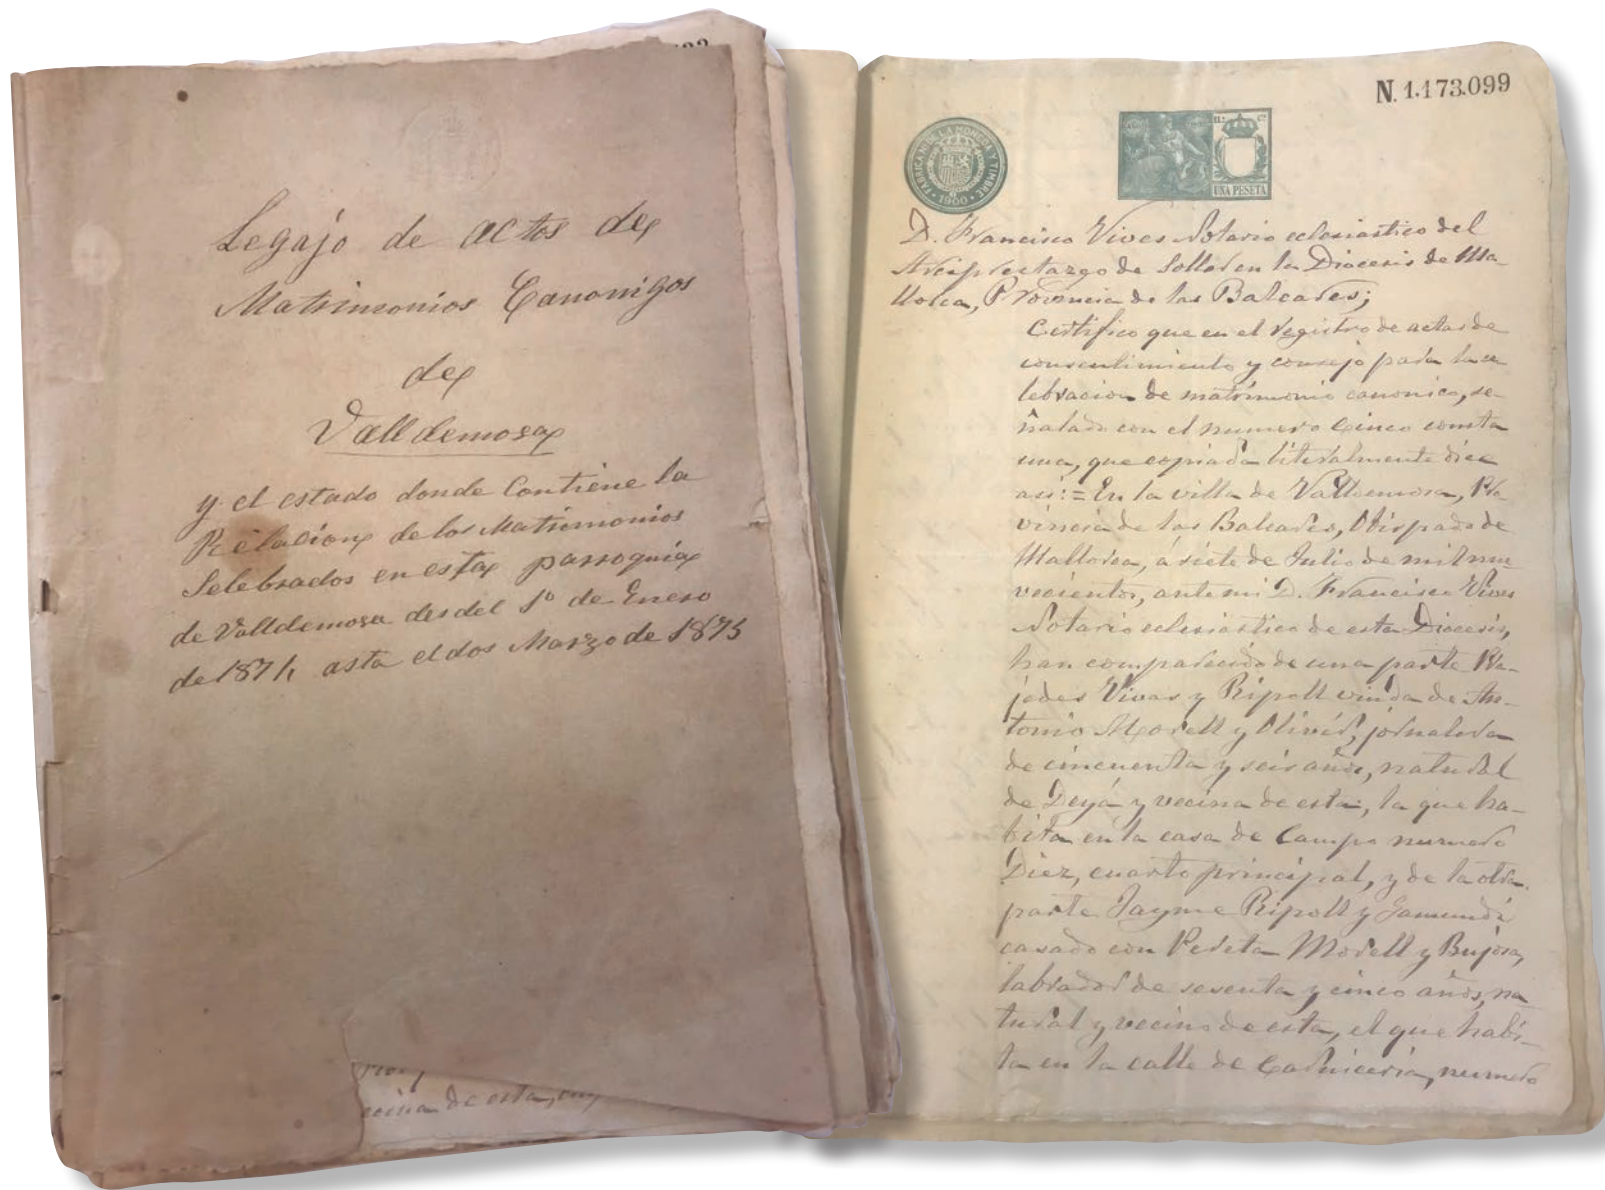 Legajo de actos de
Matrimonios Canonigos
de
Valldemosa
y el estado donde Contiene la
Relacion de los Matrimonios
Selebrados en esta parroquia
de Valldemosa desdel 1º de Enero
de 1871, asta el dos Marzo de 1875
ecina de esta,
N. 1.173.099
FABRICA N. DE LA MONEDA Y TIMBRE
1900
11.ª Cª
UNA PESETA
D. Francisco Vives Notario eclesiastico del
Arciprestazgo de Soller en la Diocesis de Ma-
llorca, Provincia de las Baleares;
Certifico que en el registro de actas de
consentimiento y consejo para la ce
lebracion de matrimonio canonico, se-
ñalado con el numero Cinco consta
una, que copiada literalmente dice
asi: = En la villa de Valldemosa, Pro
vincia de las Baleares, Obispado de
Mallorca, á siete de Julio de mil nue
vecientos, ante mi D. Francisco Vives
Notario eclesiastico de esta Diocesis,
han comparecido de una parte Pra-
jedes Vivas y Ripoll viuda de An-
tonio Morell y Olivér, jornalera
de cincuenta y seis años, natural
de Deyá y vecina de esta, la que ha-
bita en la casa de Campo numero
Diez, cuarto principal, y de la otra
parte Jayme Ripoll y Gamundí
casado con Pereta Morell y Bujosa,
labrador de sesenta y cinco años, na
tural y vecino de esta, el que habi-
ta en la calle de Carniceria, numero